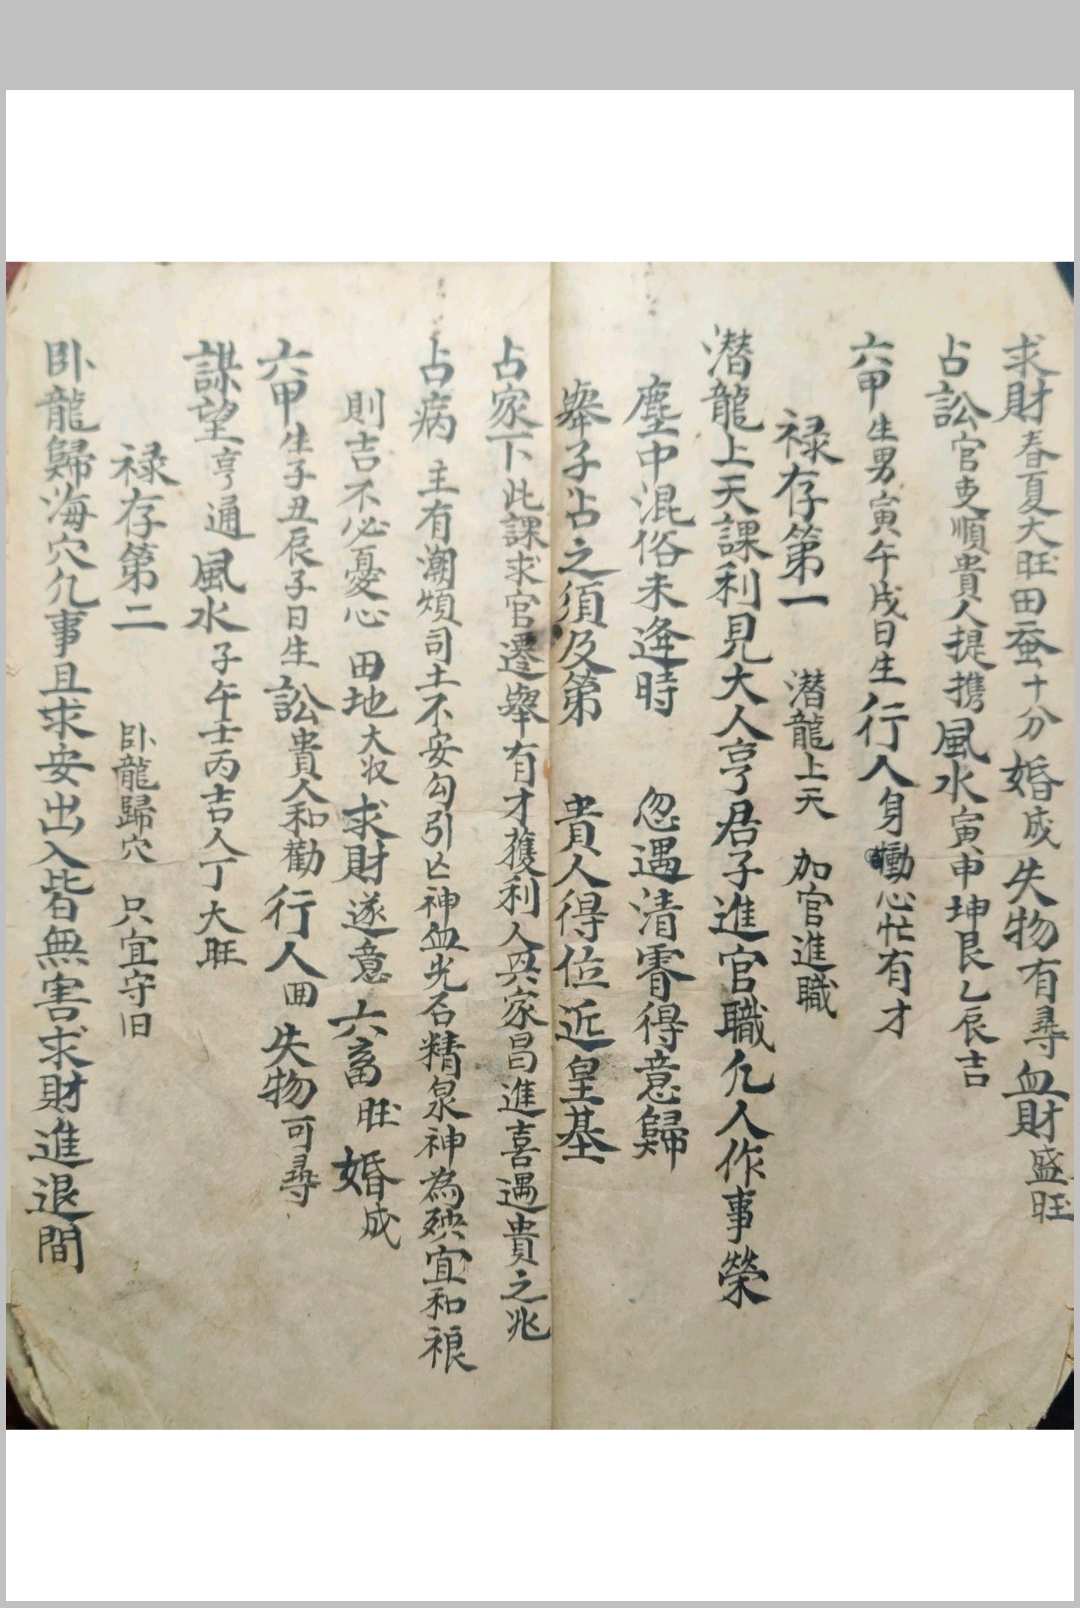 求財春夏大旺田蚕十分婚成失物有尋血財盛旺
占訟官吏順貴人提携風水寅申坤艮乙辰吉
六甲生男寅午戌日生行人身動心忙有才
禄存第一 潜龍上天 加官進職
潜龍上天課利見大人亨君子進官職凢人作事榮
塵中混俗未逢時 忽遇清霄得意歸
舉子占之須及第 貴人得位近皇基
占家下此課求官遷舉有才獲利人興家昌進喜遇貴之兆
占病主有潮煩司土不安勾引亡神血光石精泉神為殃宜和禳
則吉不必憂心田地大收求財遂意六畜旺婚成
六甲生子丑辰子日生訟貴人和勸行人回失物可尋
謀望亨通風水子午壬丙吉人丁大旺
禄存第二 卧龍歸穴 只宜守旧
卧龍歸海穴凢事且求安出入皆無害求財進退間